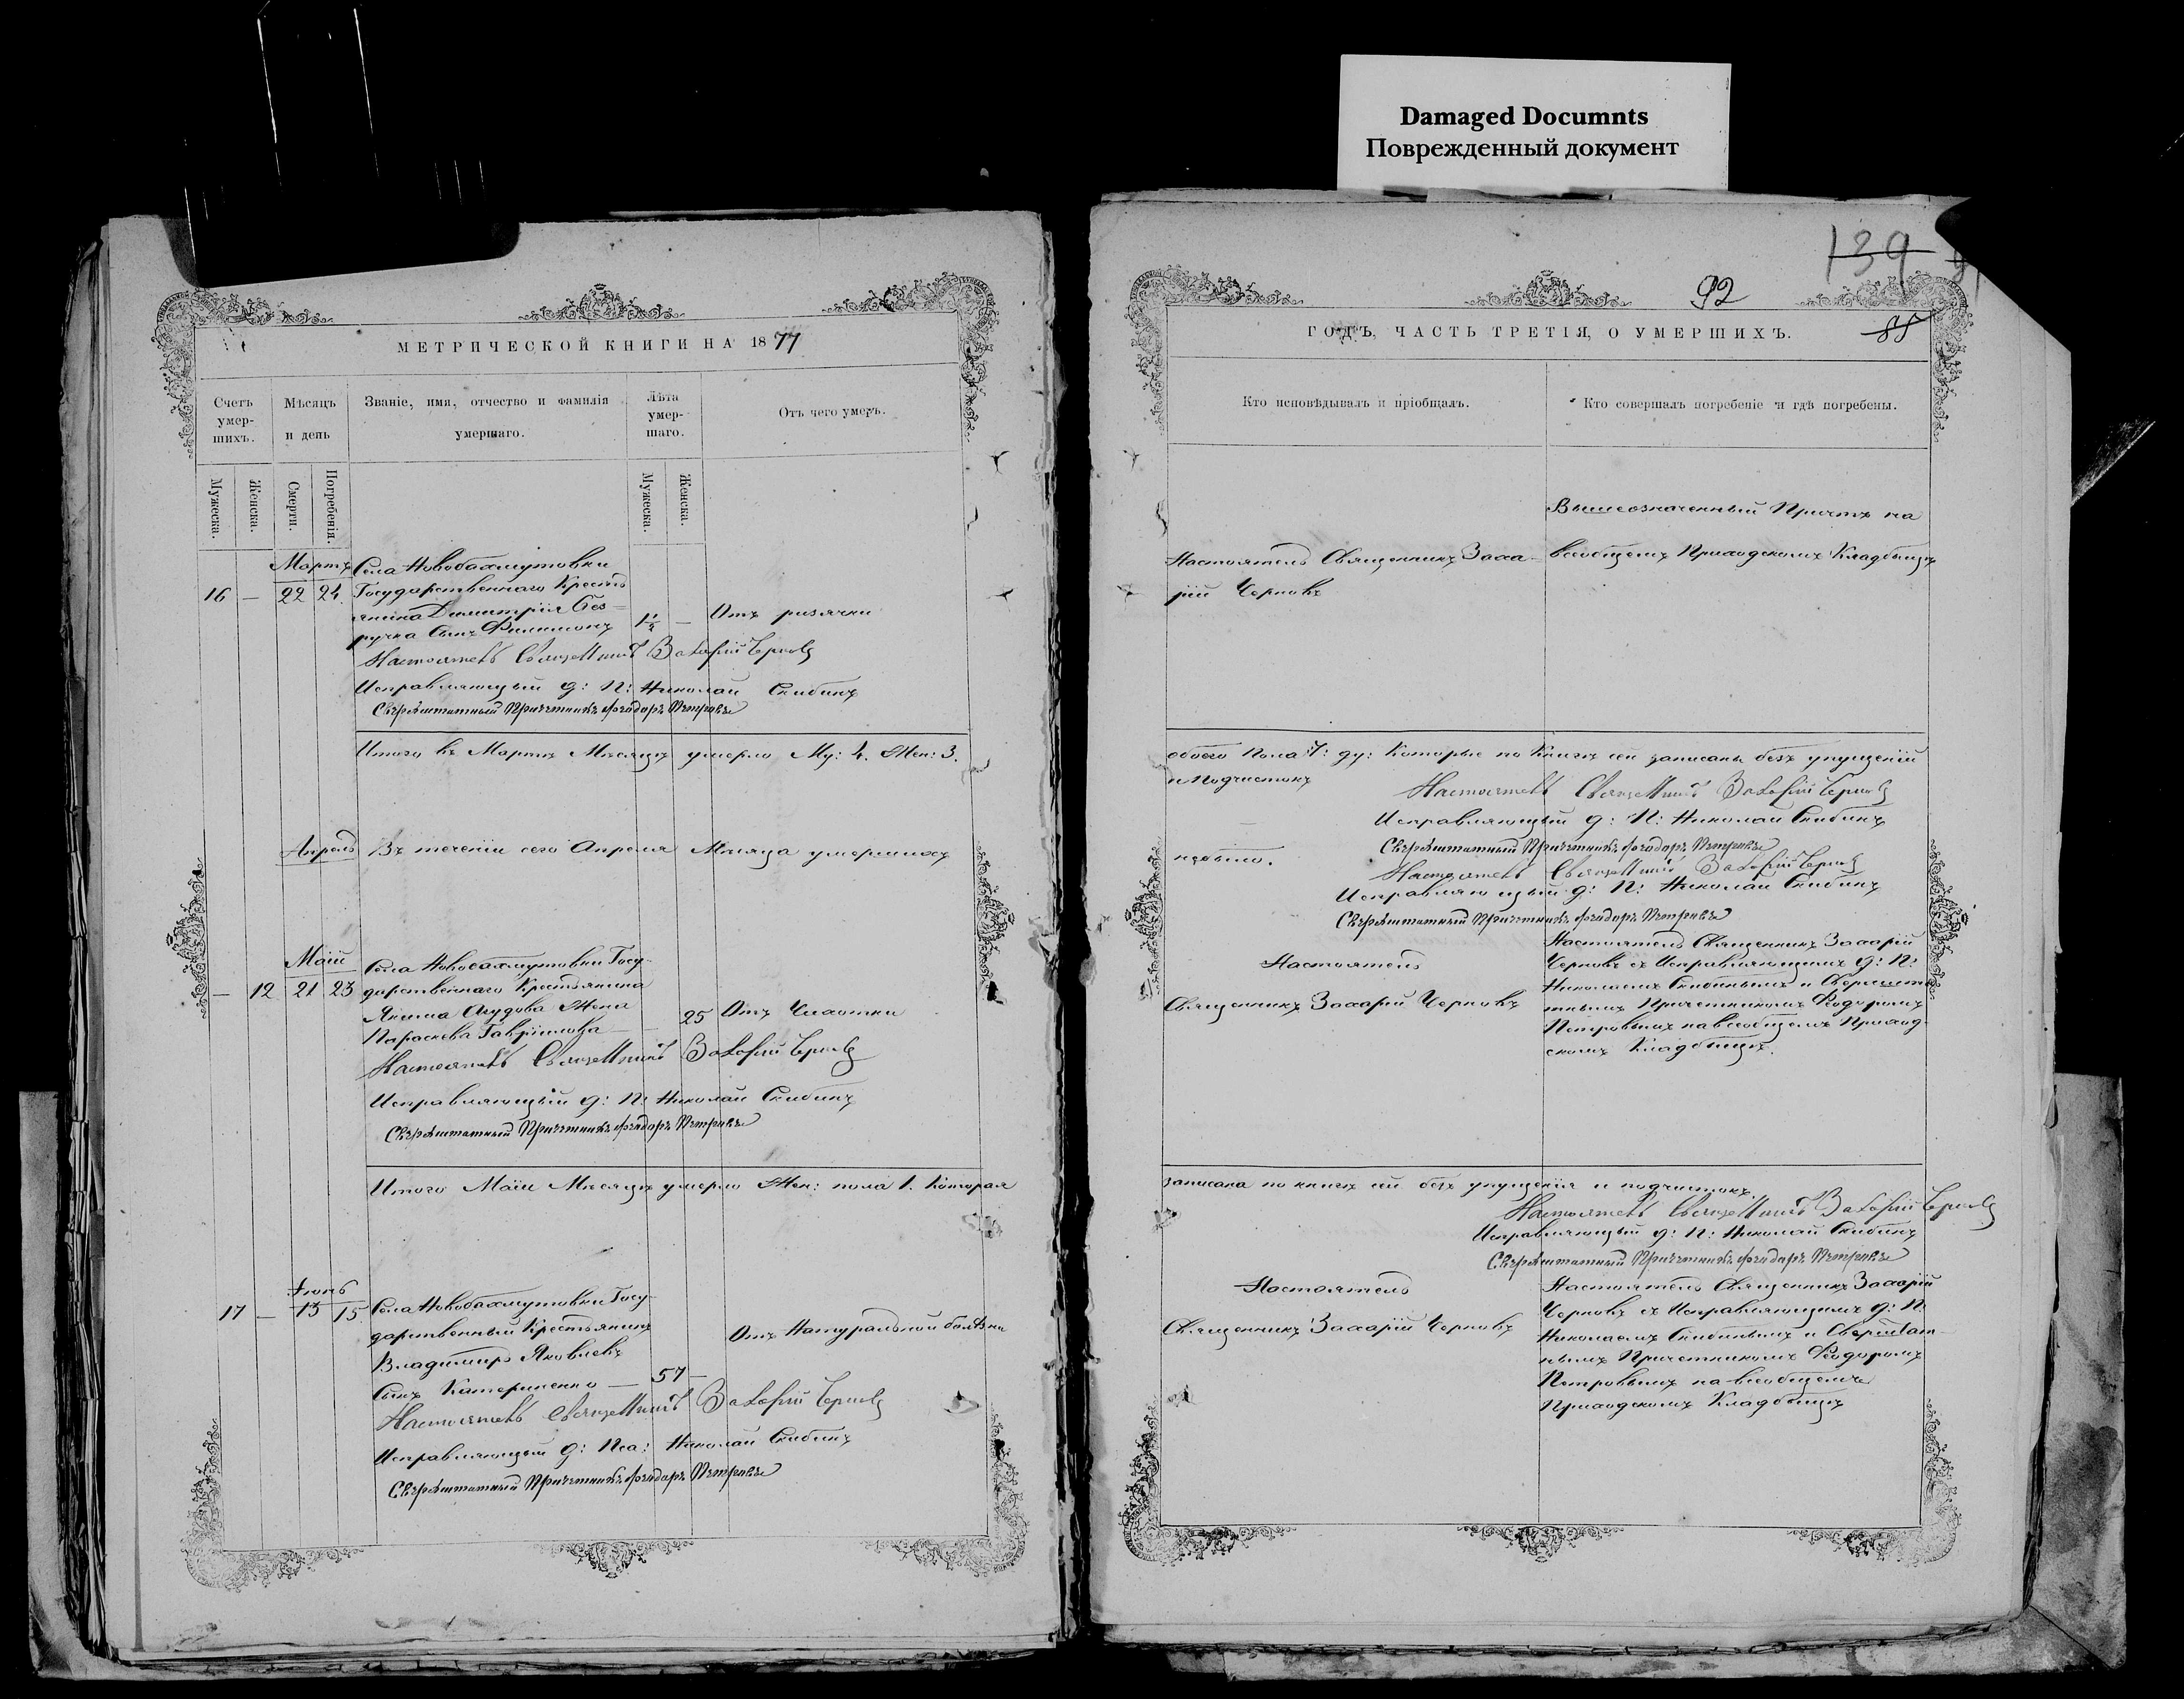 Damaged Documnts
Поврежденный документ
139
92
88
МЕТРИЧЕСКОЙ КНИГИ НА 1877
Счетъ умер-шихъ.
Мѣсяцъ и день
Званіе, имя, отчество и фамилія умершаго.
Лѣта умер-шаго.
Отъ чего умеръ.
Мужеска.
Женска.
Смерти.
Погребенія.
Мужеска.
Женска.
Мартъ
16 — 22 24.
Села Новобахмутовки
Государственнаго Кресть
янина Димитрія Без=
ручка Сынъ Филимонъ
1½ — Отъ
Настоятель Священникъ Захарій Черновъ
Исправляющій д: П: Николай Скибинъ
Сверхштатный Причетникъ Феодоръ Петровъ
Итого въ Мартѣ Мѣсяцѣ умерло Му: 4. Жен: 3.
Апрель
Въ теченіи сего Апреля Мѣсяца умершихъ
Маій
— 12 21 23
Села Новобахмутовки Госу-
дарственнаго Крестьянина
Якима Жена
Параскева Гаврилова —
25 Отъ Чахотки
Настоятель Священникъ Захарій Черновъ
Исправляющій д: П: Николай Скибинъ
Сверхштатный Причетникъ Феодоръ Петровъ
Итого Маіи Мѣсяцѣ умерло Жен: пола 1. Которая
Іюнь
17 — 13 15
Села Новобахмутовки Госу-
дарственный Крестьянинъ
Владимиръ Яковлевъ
Сынъ Катериненко — 57 —
Отъ Натуральной болѣзни
Настоятель Священникъ Захарій Черновъ
Исправляющій д: Пса: Николай Скибинъ
Сверхштатный Причетникъ Феодоръ Петровъ
ГОДЪ, ЧАСТЬ ТРЕТІЯ, О УМЕРШИХЪ.
Кто исповѣдывалъ и пріобщалъ.
Кто совершалъ погребеніе и гдѣ погребены.
Настоятель Священникъ Заха-
рій Черновъ
Вышеозначенный Причтъ на
всеобщемъ Приходскомъ Кладбищѣ
обоего Пола 7: ду: Которые по Книгѣ сей записаны безъ упущеній
и Подчистокъ
Настоятель Священникъ Захарій Черновъ
Исправляющій д: П: Николай Скибинъ
Сверхштатный Причетникъ Феодоръ Петровъ
небыло.
Настоятель Священникъ Захарій Черновъ
Исправляющій д: П: Николай Скибинъ
Сверхштатный Причетникъ Феодоръ Петровъ
Настоятель
Священникъ Захарій Черновъ
Настоятель Священникъ Захарій
Черновъ съ Исправляющимъ д: П:
Николаемъ Скибинымъ и Сверхшта
тнымъ Причетникомъ Феодоромъ
Петровымъ на всеобщемъ Приход-
скомъ Кладбищѣ.
записана по книгѣ сей безъ упущенія и подчистокъ.
Настоятель Священникъ Захарій Черновъ
Исправляющій д: П: Николай Скибинъ
Сверхштатный Причетникъ Феодоръ Петровъ
Настоятель
Священникъ Захарій Черновъ
Настоятель Священникъ Захарій
Черновъ съ Исправляющимъ д: П:
Николаемъ Скибинымъ и Сверхштат-
нымъ Причетникомъ Феодоромъ
Петровымъ на всеобщемъ
Приходскомъ Кладбищѣ